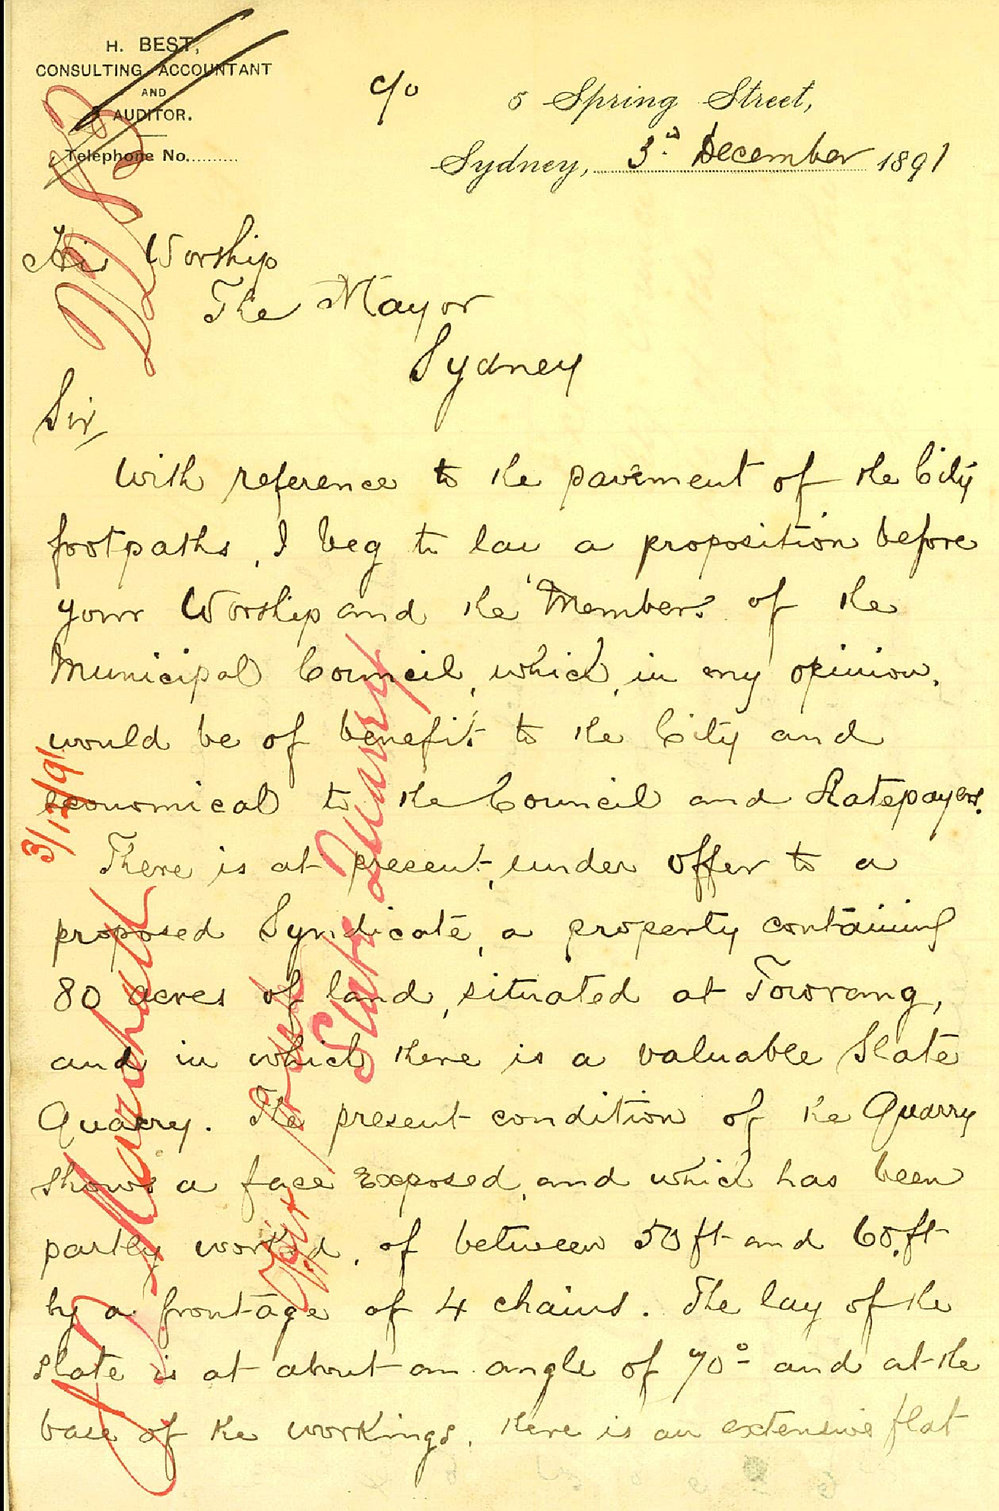 H. BEST,
CONSULTING ACCOUNTANT
AND
AUDITOR.
Telephone No..........
c/o 5 Spring Street,
Sydney, 3rd December 1891
His Worship
The Mayor
Sydney
Sir,
With reference to the pavement of the City
footpaths, I beg to lay a proposition before
your Worship and the Members of the
Municipal Council, which, in my opinion,
would be of benefit to the City and
economical to the Council and Ratepayers.
There is at present, under offer to a
proposed Syndicate, a property containing
80 acres of land, situated at Towrang,
and in which there is a valuable Slate
Quarry. The present condition of the Quarry
shows a face exposed, and which has been
partly worked, of between 50 ft and 60. ft
by a frontage of 4 chains. The lay of the
slate is at about an angle of 70° and at the
base of the workings, there is an extensive flat
3/12/91
Slate Quarry
Marshall